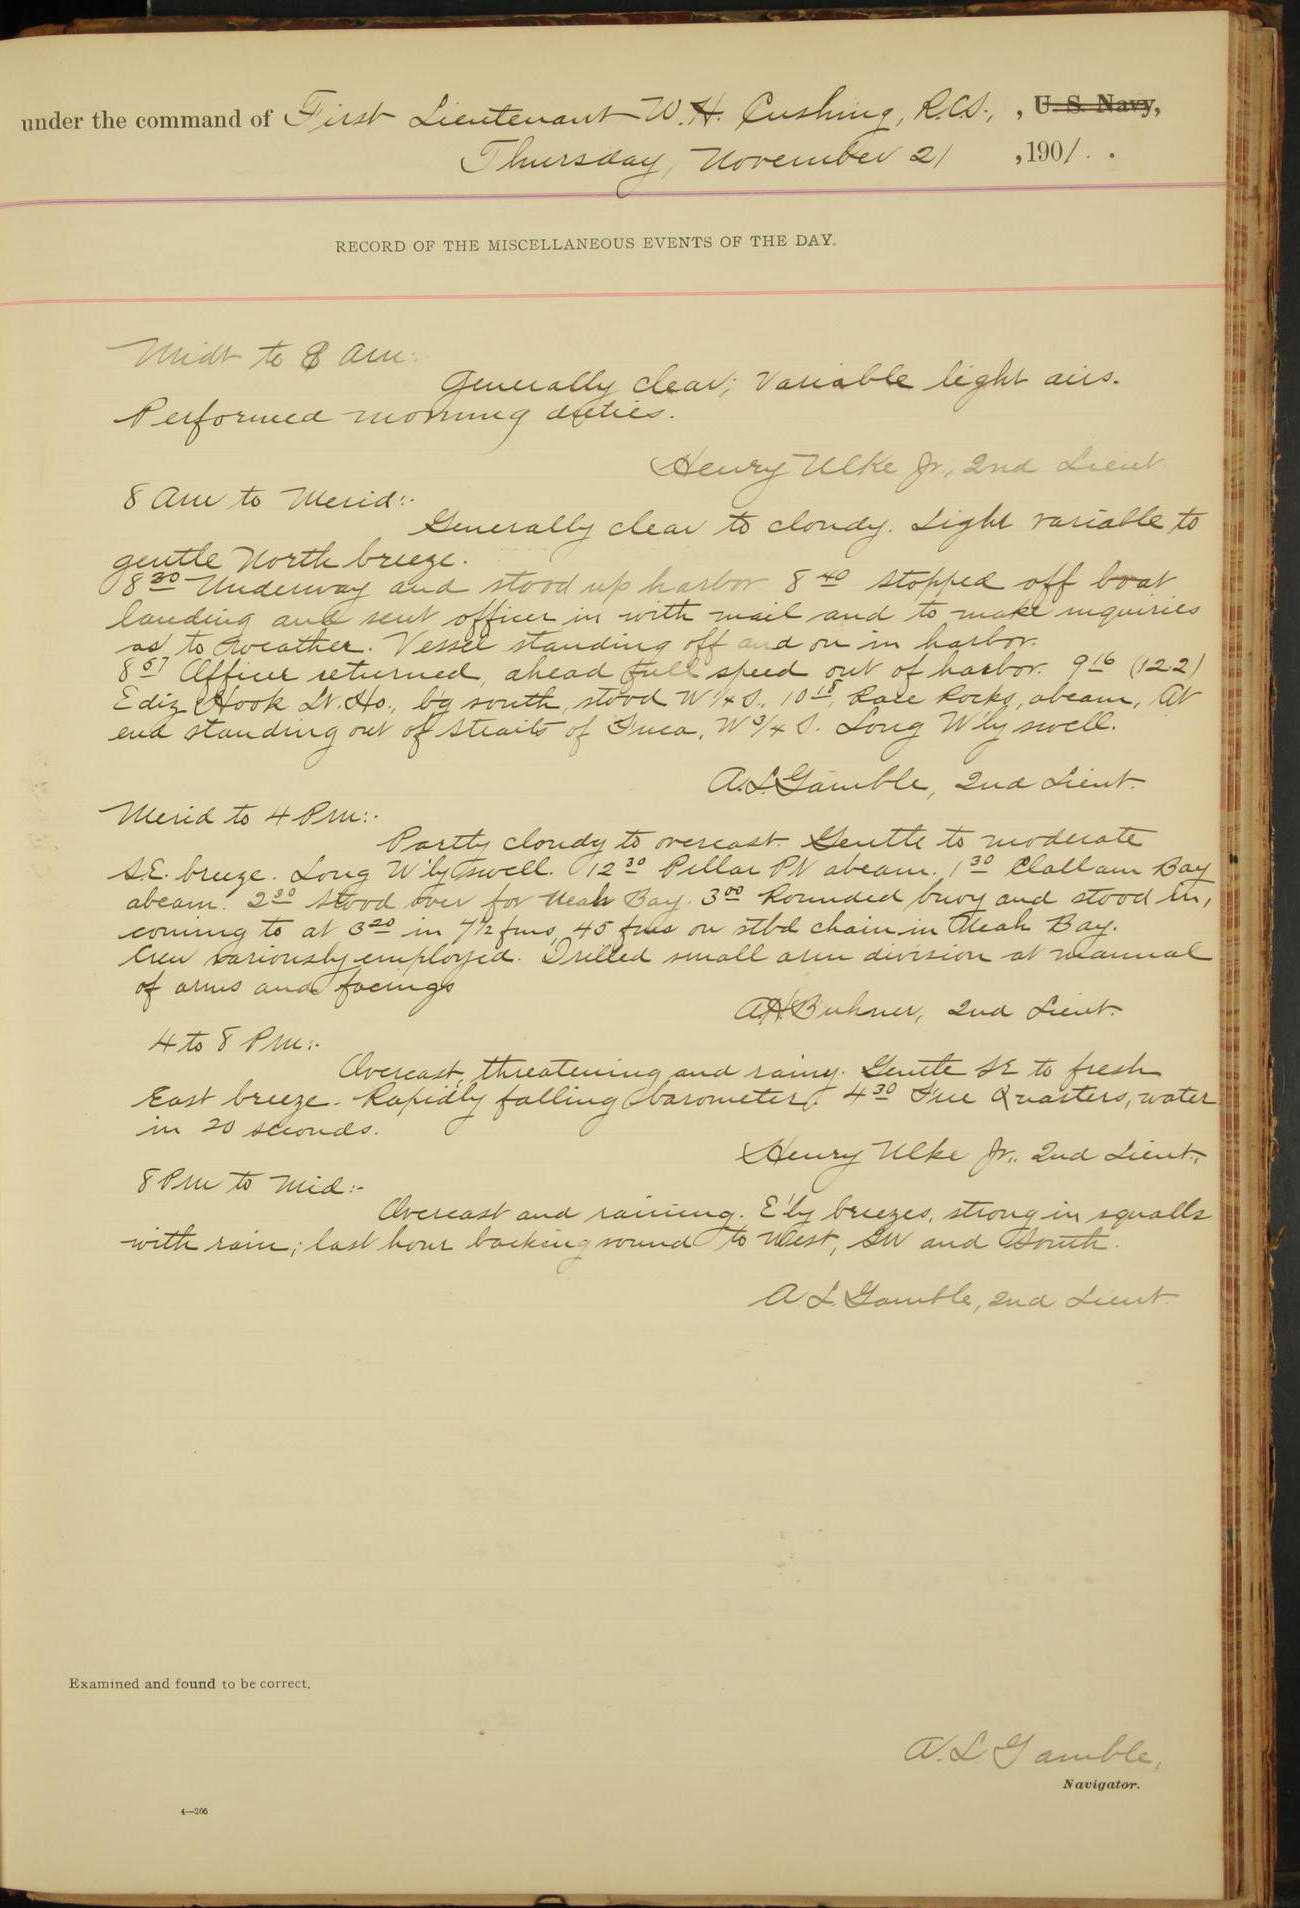 under the command of First Lieutenant W. H. Cushing, R.C.S., , U. S. Navy,
Thursday, November 21 , 1901.
RECORD OF THE MISCELLANEOUS EVENTS OF THE DAY.
Midt to 8 Am:
Generally clear; Variable light airs.
Performed morning duties.
Henry Ulke Jr., 2nd Lieut
8 Am to Merid:-
Generally clear to cloudy. Light variable to
gentle North breeze.
8 30 Underway and stood up harbor 8 40 stopped off boat
landing and sent officer in with mail and to make inquiries
as to weather. Vessel standing off and on in harbor.
8 57 Officer returned, ahead full speed out of harbor. 9 16 (12.2)
Ediz Hook Lt. Ho., b'g south, stood W 1/4 S., 10 18, Race Rocks, abeam, At
end standing out of Straits of Fuca, W 3/4 S. Long W'ly swell.
A. L. Gamble, 2nd Lieut.
Merid to 4 Pm:-
Partly cloudy to overcast. Gentle to moderate
S.E. breeze. Long W'ly swell. 12 30 Pillar Pt abeam. 1 30 Clallam Bay
abeam. 2 30 stood over for Neah Bay. 3 00 Rounded buoy and stood in,
coming to at 3 20 in 7 1/2 fms, 45 fms on stbd chain in Neah Bay.
Crew variously employed. Drilled small arm division at manual
of arms and facings
A H Buhner, 2nd Lieut.
4 to 8 Pm:-
Overcast, threatening and rainy. Gentle SE to fresh
East breeze. Rapidly falling barometer. 4 30 Fire Quarters, water
in 20 seconds.
Henry Ulke Jr., 2nd Lieut.,
8 Pm to Mid:-
Overcast and raining. E'ly breezes, strong in squalls
with rain; last hour backing round to West, SW and South.
A. L. Gamble, 2nd Lieut
Examined and found to be correct.
A. L. Gamble,
Navigator.
4—206